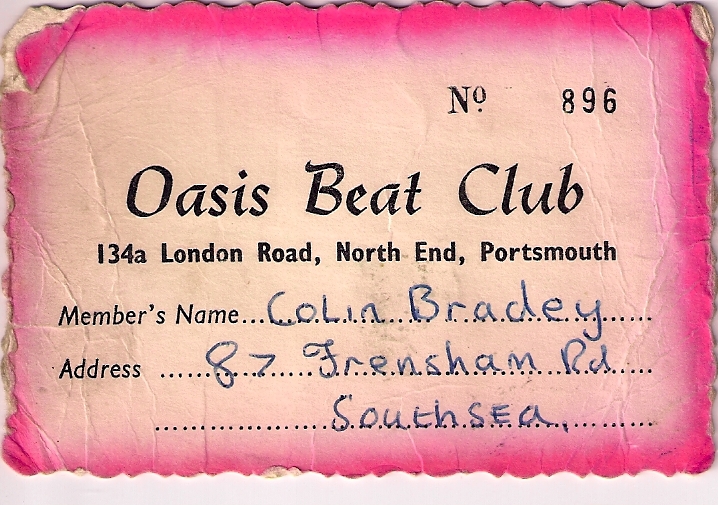 Nº 896
Oasis Beat Club
134a London Road, North End, Portsmouth
Member's Name...Colin Bradey
Address ......87 Frensham Rd
Southsea,